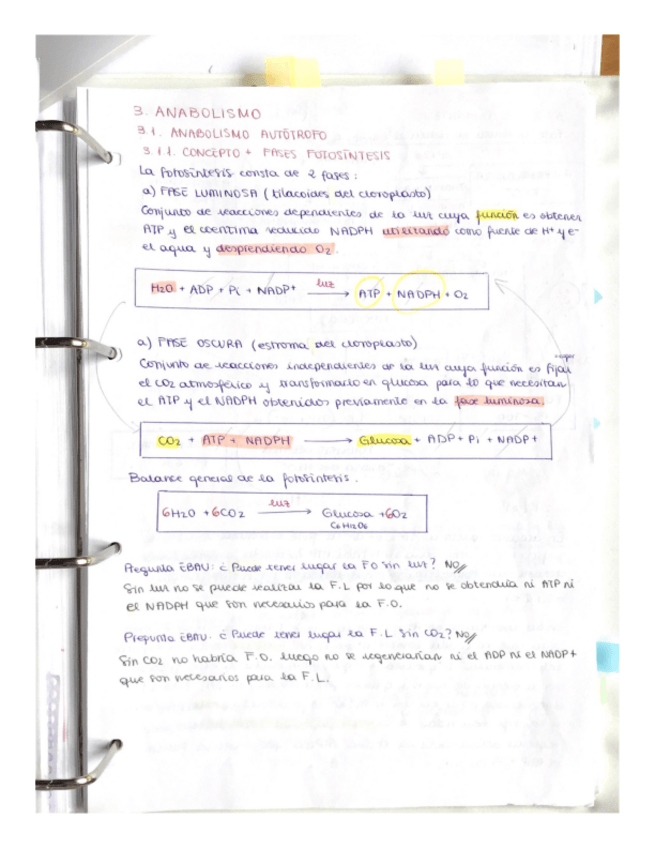 3. ANABOLISMO
3.1. ANABOLISMO AUTÓTROFO
3.1.1. CONCEPTO + FASES FOTOSÍNTESIS
La fotosíntesis consta de 2 fases:
a) FASE LUMINOSA (tilacoides del cloroplasto)
Conjunto de reacciones dependientes de la luz cuya función es obtener
ATP y el coenzima reducido NADPH utilizando como fuente de H+ y e-
el agua y desprendiendo O2.
luz
H2O + ADP + Pi + NADP+ → ATP + NADPH + O2
a) FASE OSCURA (estroma del cloroplasto)
Conjunto de reacciones independientes de la luz cuya función es fijar
el CO2 atmosférico y transformarlo en glucosa para lo que necesitan
el ATP y el NADPH obtenidos previamente en la fase luminosa.
CO2 + ATP + NADPH → Glucosa + ADP + Pi + NADP+
Balance general de la fotosíntesis.
luz
6H2O + 6CO2 → Glucosa + 6O2
C6H12O6
Pregunta EBAU: ¿Puede tener lugar la FO sin luz? NO
Sin luz no se puede realizar la F.L por lo que no se obtendría ni ATP ni
el NADPH que son necesarios para la F.O.
Pregunta EBAU: ¿Puede tener lugar la F.L sin CO2? NO
Sin CO2 no habría F.O. luego no se regenerarían ni el ADP ni el NADP+
que son necesarios para la F.L.